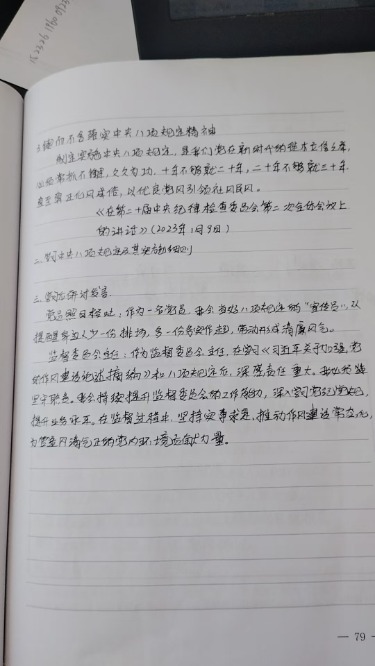 3.锲而不舍落实中央八项规定精神
制定实施中央八项规定，是我们党在新时代的徙木立信之举，
必须常抓不懈，久久为功，十年不够就二十年，二十年不够就三十年，
直至真正化风成俗，以优良党风引领社风民风。
《在第二十届中央纪律检查委员会第二次全体会议上
的讲话》（2023年1月9日）
二、学习中央八项规定及其实施细则
三、学习研讨发言
党员：作为一名党员，要当好八项规定的“宣传员”，以
少一份排场，多一份务实作进，带动形成清廉风气。
监督委员会主任：作为监督委员会主任，在学习《习近平关于加强党
的作风建设论述摘编》和八项规定后，深感责任重大。
要持续提升监督委员会的工作能力，深入学习党纪党规，
提升业务水平。在监督过程中，坚持实事求是，推动作风建设常态化，
为营造风清气正的党内环境贡献力量。
— 79 —